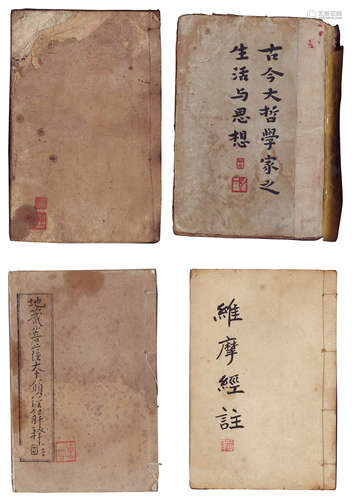 古今大哲學家之
生活与思想
地藏菩薩本願經解釋
維摩經註